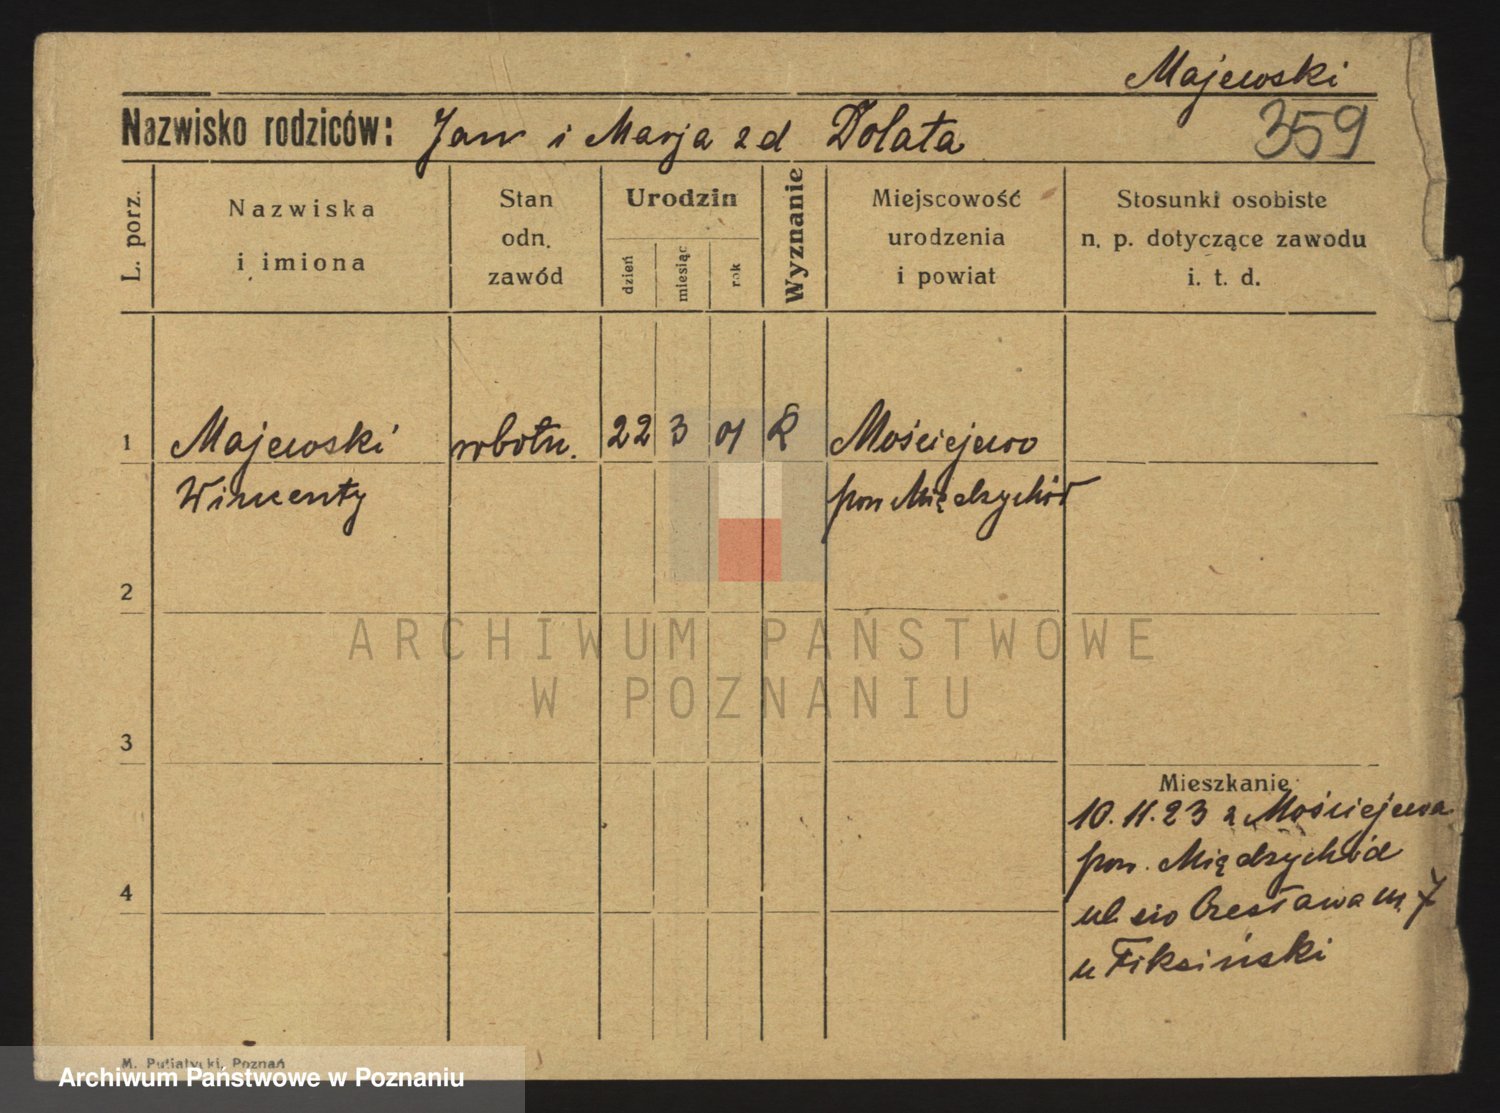 Majewski
Nazwisko rodziców: Jan i Marja zd Dolata
359
L. porz.
Nazwiska
i imiona
Stan
odn.
zawód
Urodzin
dzień
miesiąc
rok
Wyznanie
Miejscowość
urodzenia
i powiat
Stosunki osobiste
n. p. dotyczące zawodu
i. t. d.
1 Majewski robotn. 22 3 01 R Mościejewo
Wincenty pow Międzychód
2
ARCHIWUM PAŃSTWOWE
W POZNANIU
3
Mieszkanie
10.11.23 z Mościejewa
pow. Międzychód
4
ul. św Czesława nr 7
u Fiksiński
M. Putiatycki, Poznań
Archiwum Państwowe w Poznaniu